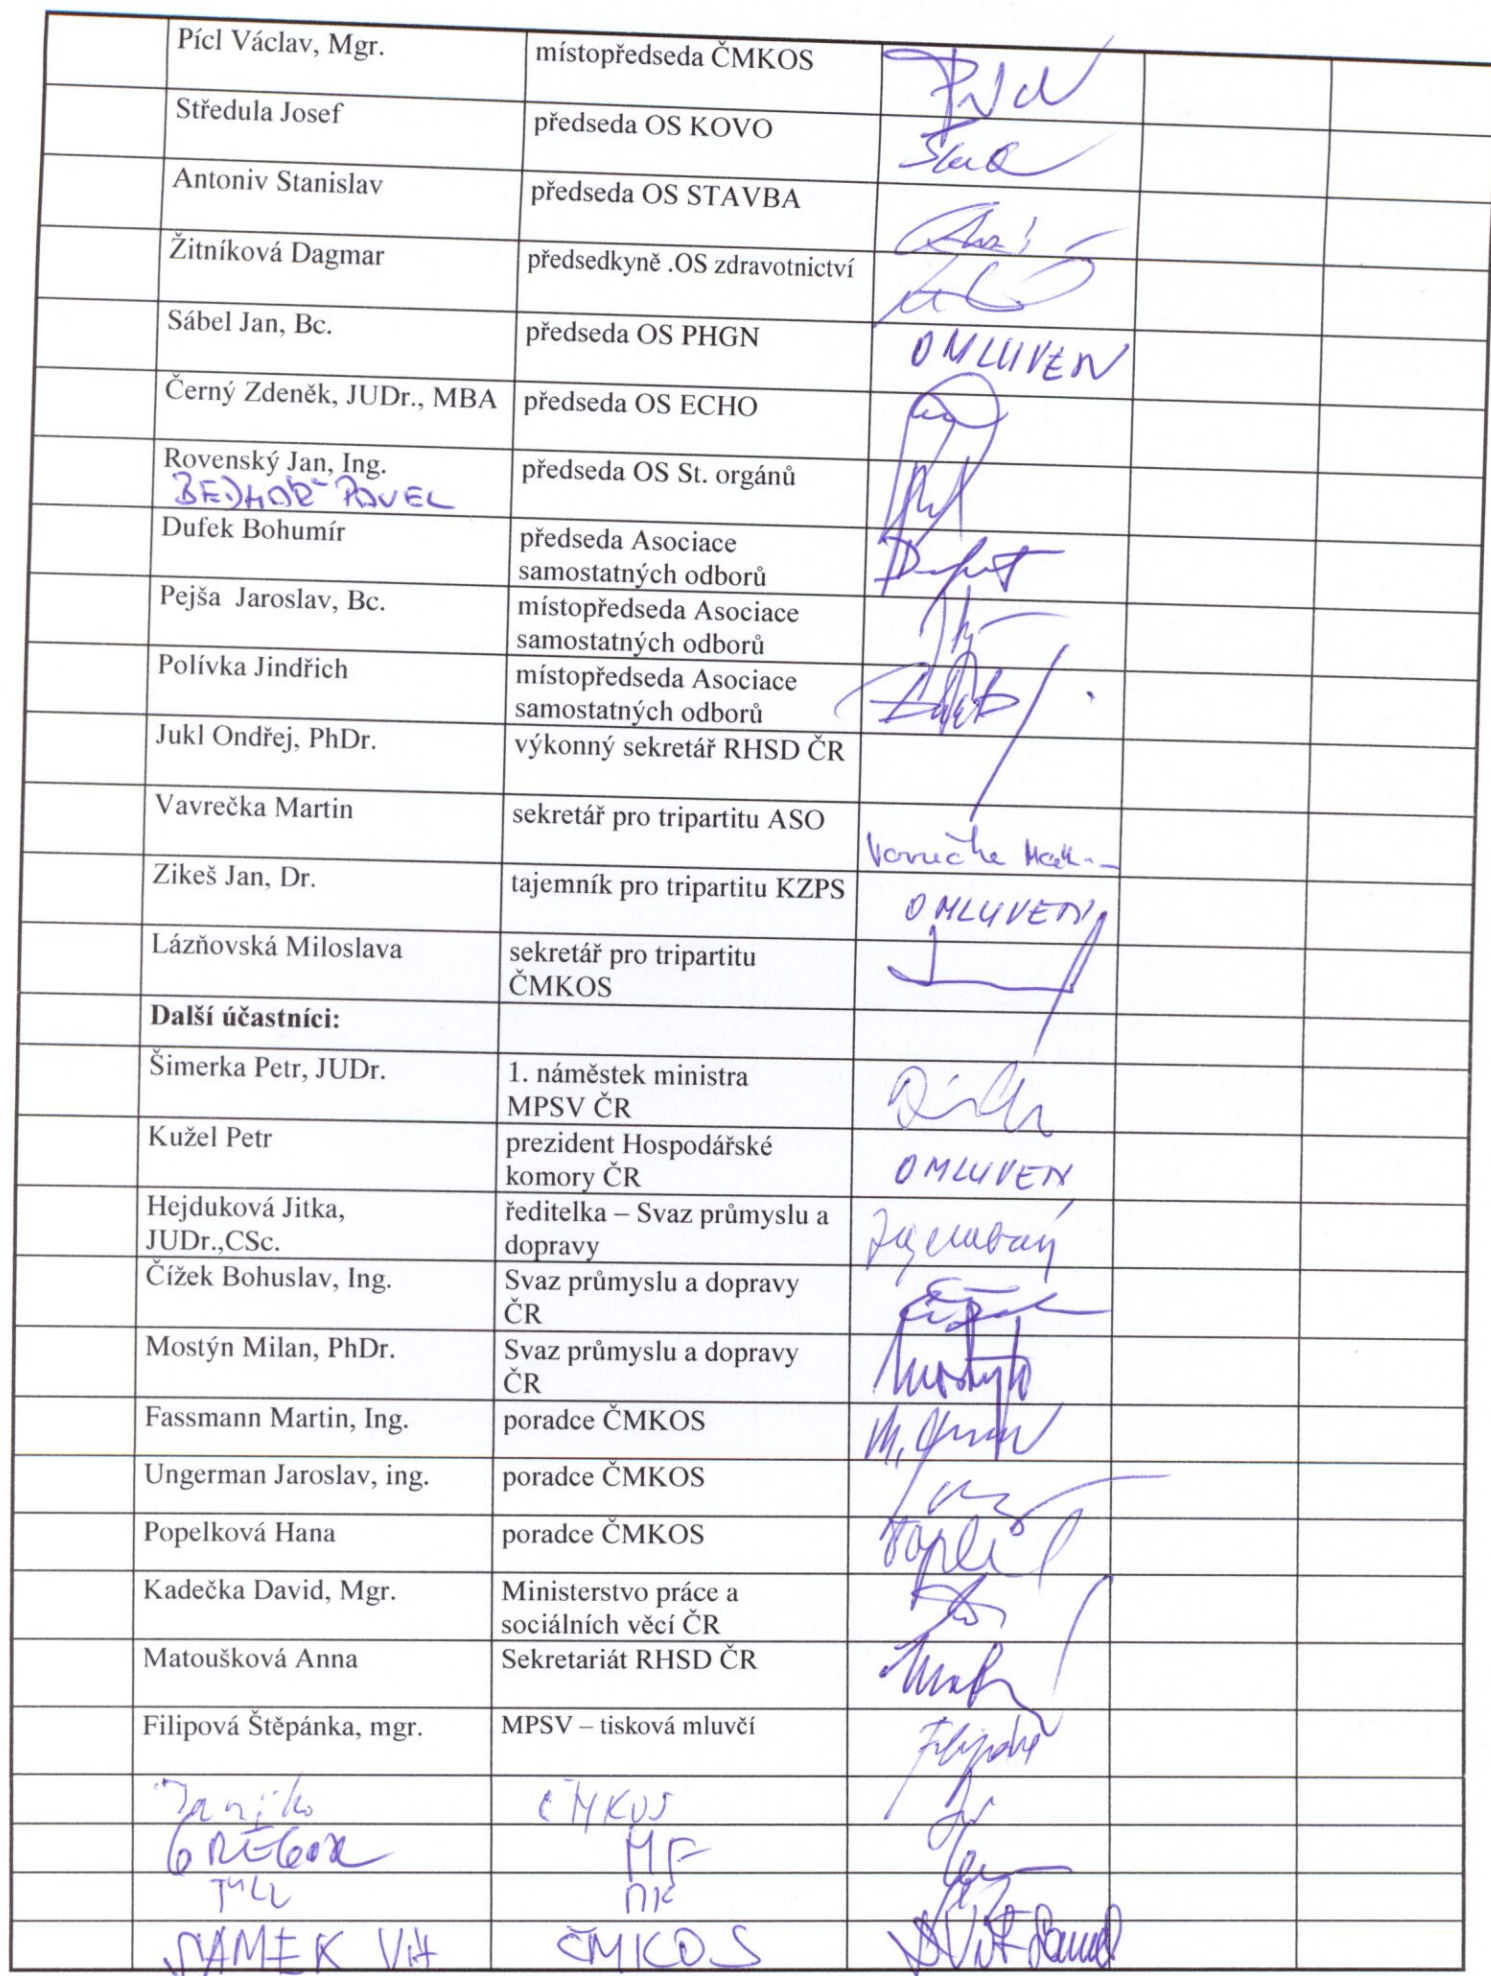 Pícl Václav, Mgr. místopředseda ČMKOS
Středula Josef předseda OS KOVO
Antoniv Stanislav předseda OS STAVBA
Žitníková Dagmar předsedkyně .OS zdravotnictví
Sábel Jan, Bc. předseda OS PHGN OMLUVEN
Černý Zdeněk, JUDr., MBA předseda OS ECHO
Rovenský Jan, Ing. předseda OS St. orgánů
BEDNÁŘ PAVEL
Dufek Bohumír předseda Asociace
samostatných odborů
Pejša Jaroslav, Bc. místopředseda Asociace
samostatných odborů
Polívka Jindřich místopředseda Asociace
samostatných odborů
Jukl Ondřej, PhDr. výkonný sekretář RHSD ČR
Vavrečka Martin sekretář pro tripartitu ASO
Zikeš Jan, Dr. tajemník pro tripartitu KZPS OMLUVEN
Lázňovská Miloslava sekretář pro tripartitu
ČMKOS
Další účastníci:
Šimerka Petr, JUDr. 1. náměstek ministra
MPSV ČR
Kužel Petr prezident Hospodářské
komory ČR OMLUVEN
Hejduková Jitka, ředitelka – Svaz průmyslu a
JUDr.,CSc. dopravy
Čížek Bohuslav, Ing. Svaz průmyslu a dopravy
ČR
Mostýn Milan, PhDr. Svaz průmyslu a dopravy
ČR
Fassmann Martin, Ing. poradce ČMKOS
Ungerman Jaroslav, ing. poradce ČMKOS
Popelková Hana poradce ČMKOS
Kadečka David, Mgr. Ministerstvo práce a
sociálních věcí ČR
Matoušková Anna Sekretariát RHSD ČR
Filipová Štěpánka, mgr. MPSV – tisková mluvčí
ČMKOS
GREGOR MF
SAMEK Vít ČMKOS